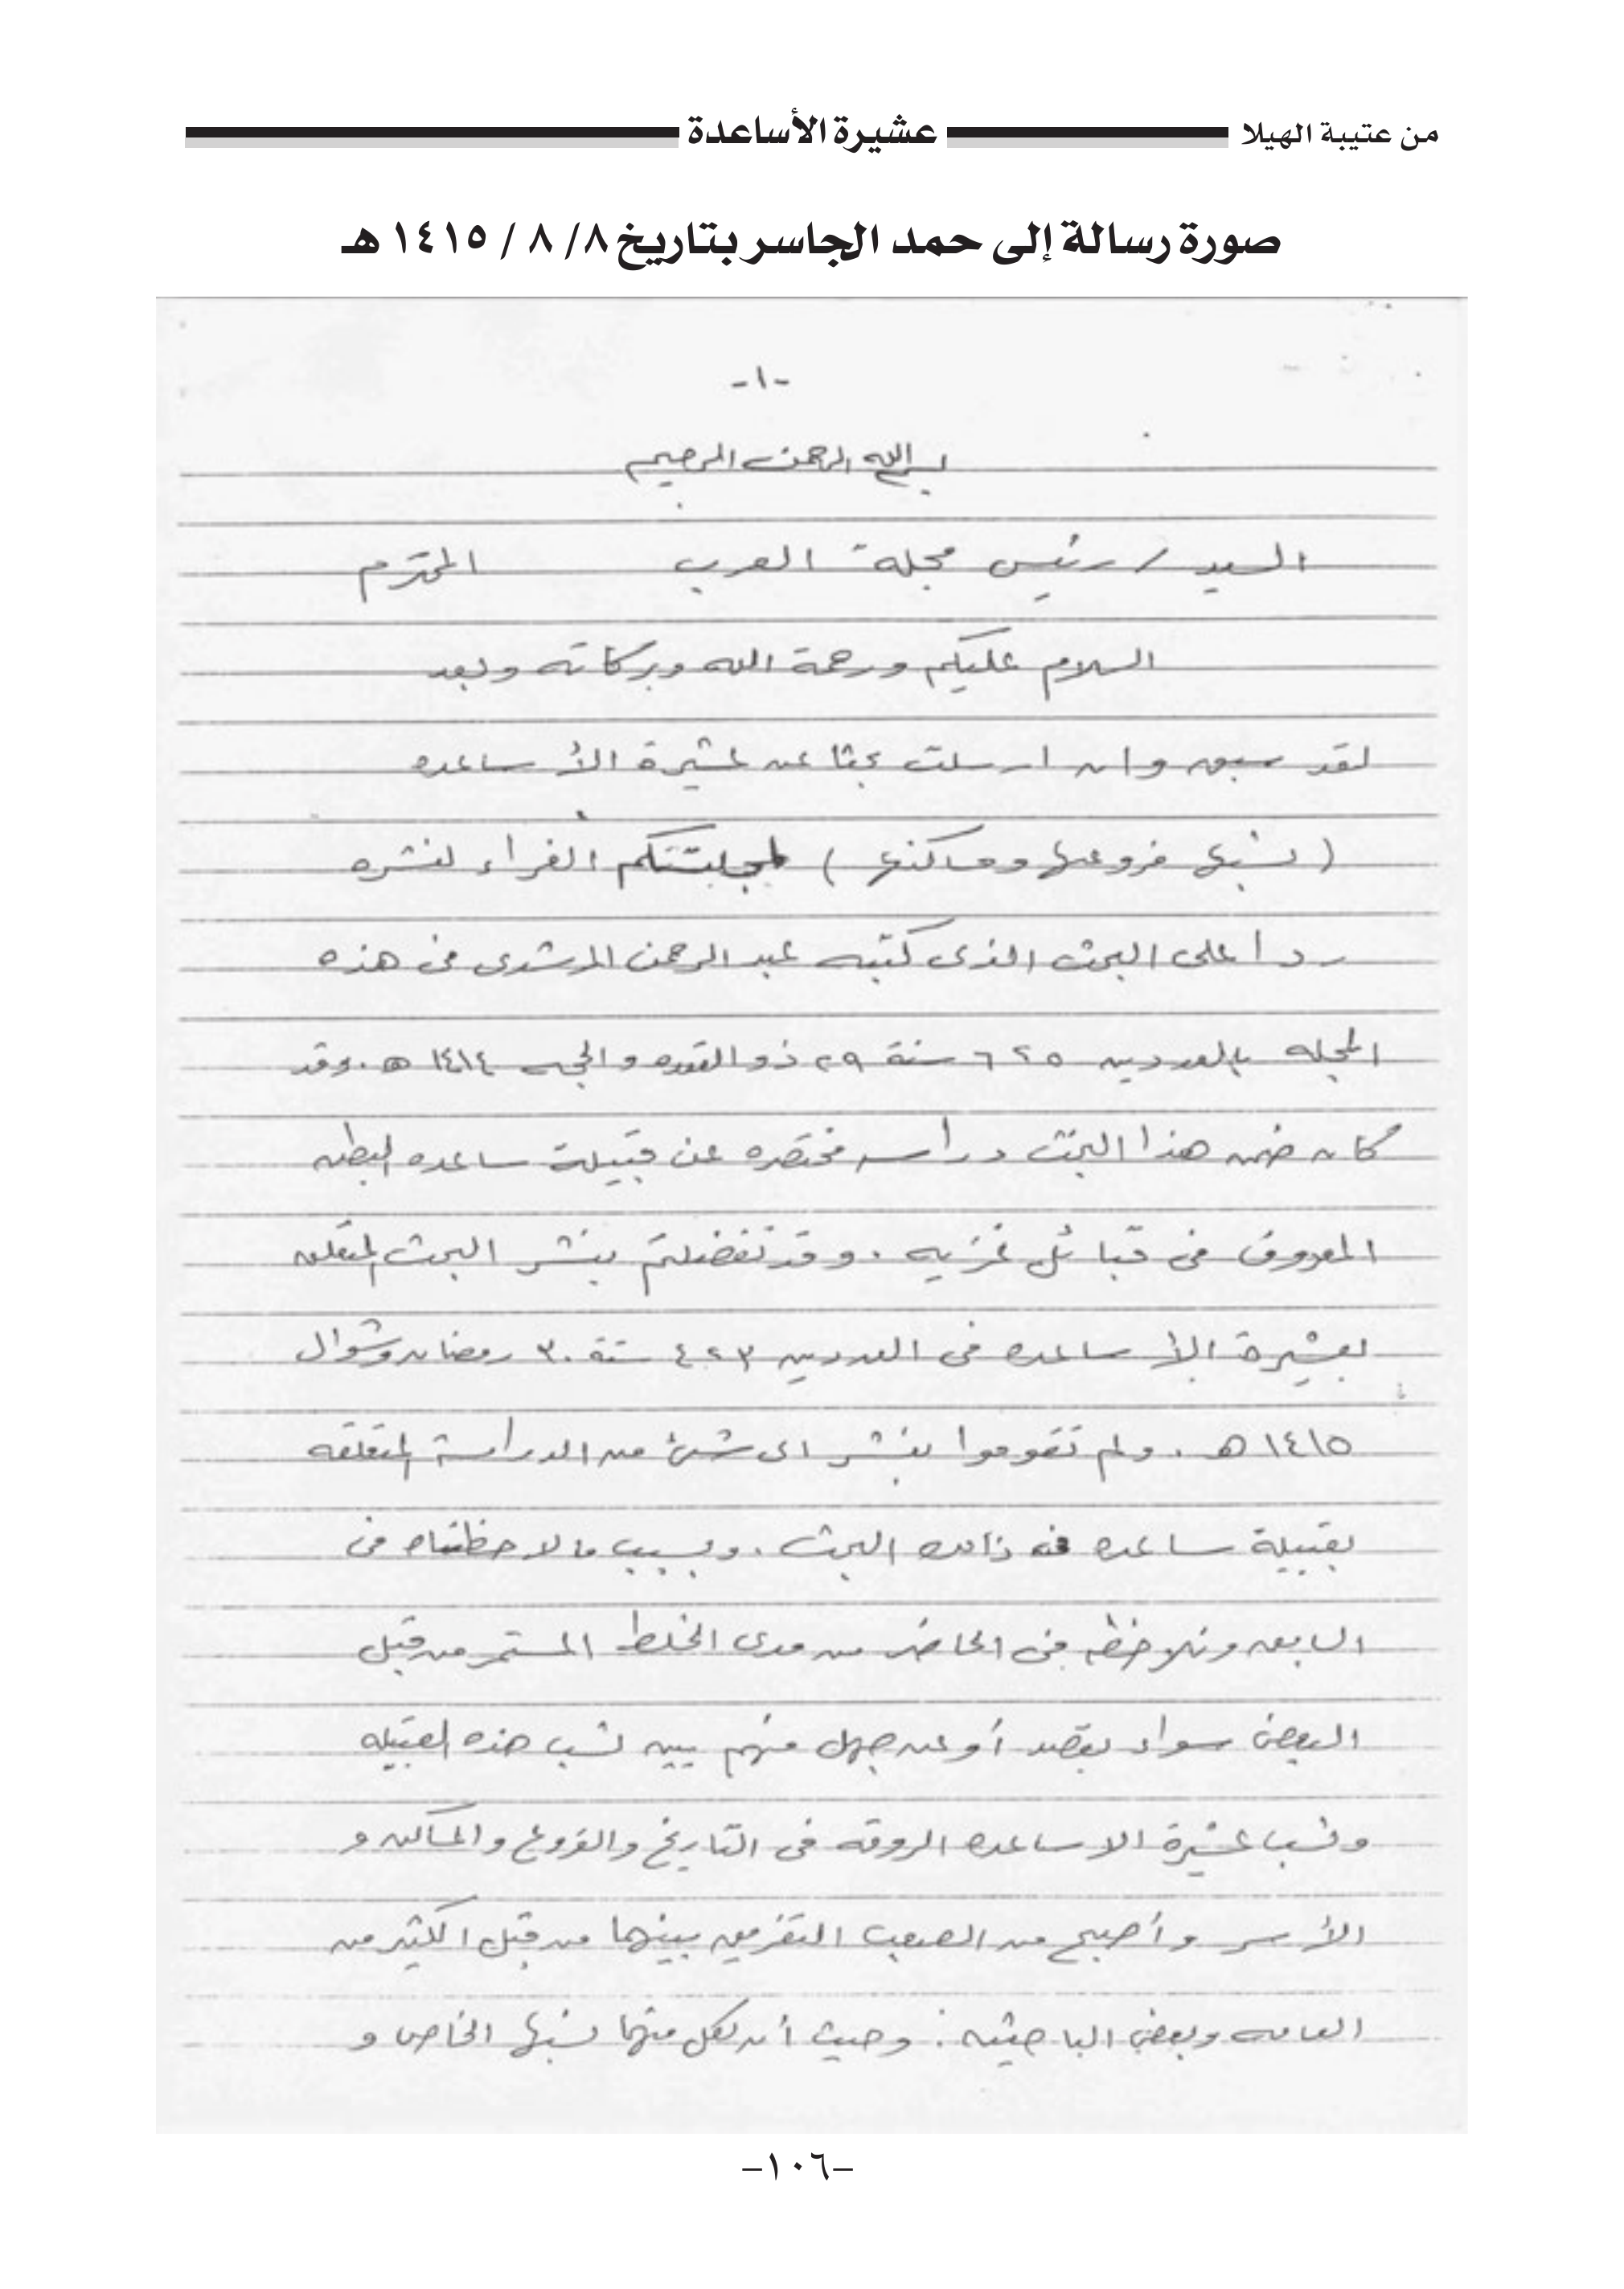 من عتيبة الهيلا
عشيرة الأساعدة
صورة رسالة إلى حمد الجاسر بتاريخ ٨/ ٨ / ١٤١٥ هـ
-١-
بسم الله الرحمن الرحيم
السيد / رئيس مجلة العرب المحترم
السلام عليكم ورحمة الله وبركاته وبعد
لقد سبق وان ارسلت بحثا عن عشيرة الأساعده
( نسبها فروعها ومساكنها ) لمجلتكم الغراء لنشره
ردا على البحث الذى كتبه عبد الرحمن المرشدى فى هذه
المجله بالعددين ٥ ٢ ٦ سنة ٢٩ ذو القعده والحجه ١٤١٤ هـ. وقد
كان ضمن هذا البحث دراسه مختصره عن قبيلة ساعده البطن
المعروف فى قبائل غزيه . وقد تفضلتم بنشر البحث المتعلق
بعشيرة الأساعده فى العددين ٣ ٢ ٤ سنة ٣٠ رمضان وشوال
١٤١٥ هـ . ولم تقوموا بنشر اى شئ من الدراسة المتعلقه
بقبيلة ساعده ذالك البحث . وبسبب ما لاحظناه فى
السابق ونلاحظه فى الحاضر من مدى الخلط المستمر من قبل
البعض سواء بقصد أو عن جهل منهم بين نسب هذه القبيله
ونسب عشيرة الاساعده الروقه فى التاريخ والفروع والمساكن و
الأسر وأصبح من الصعب التفريق بينهما من قبل الكثير من
العامه وبعض الباحثين . وحيث أن لكل منهما نسبها الخاص و
-١٠٦-